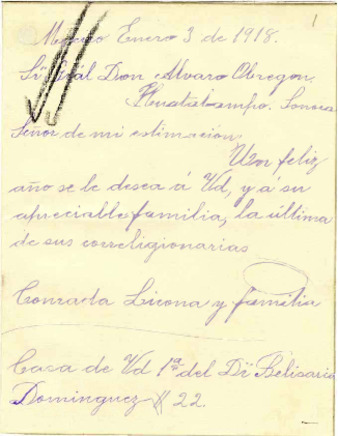 1
Mexico Enero 3 de 1918.
Sr Gral Don Alvaro Obregon.
Huatabampo. Sonora
Señor de mi estimación
Un feliz
año se le desea á Vd, y á su
apreciable familia, la última
de sus correligionarias
Conrada Licona y familia
Casa de Vd 1ª del Dr Belisario
Dominguez # 22.